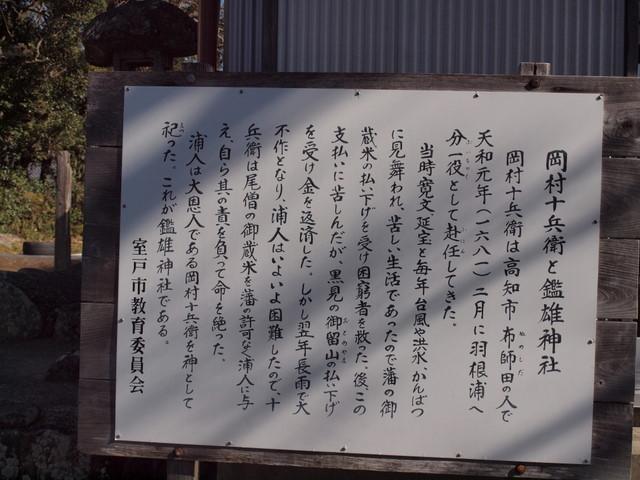 岡村十兵衛と鑑雄神社
岡村十兵衛は高知市布師田の人で
天和元年（一六八一）二月に羽根浦へ
分一役として赴任してきた。
当時寛文延宝と毎年台風や洪水、かんばつ
に見舞われ、苦しい生活であったので藩の御
蔵米の払い下げを受け困窮者を救った。後、この
支払いに苦しんだが、黒見の御留山の払い下げ
を受け金を返済した。しかし翌年長雨で大
不作となり、浦人はいよいよ困難したので、十
兵衛は尾僧の御蔵米を藩の許可なく浦人に与
え、自ら其の責を負って命を絶った。
浦人は大恩人である岡村十兵衛を神として
祀った。これが鑑雄神社である。
室戸市教育委員会